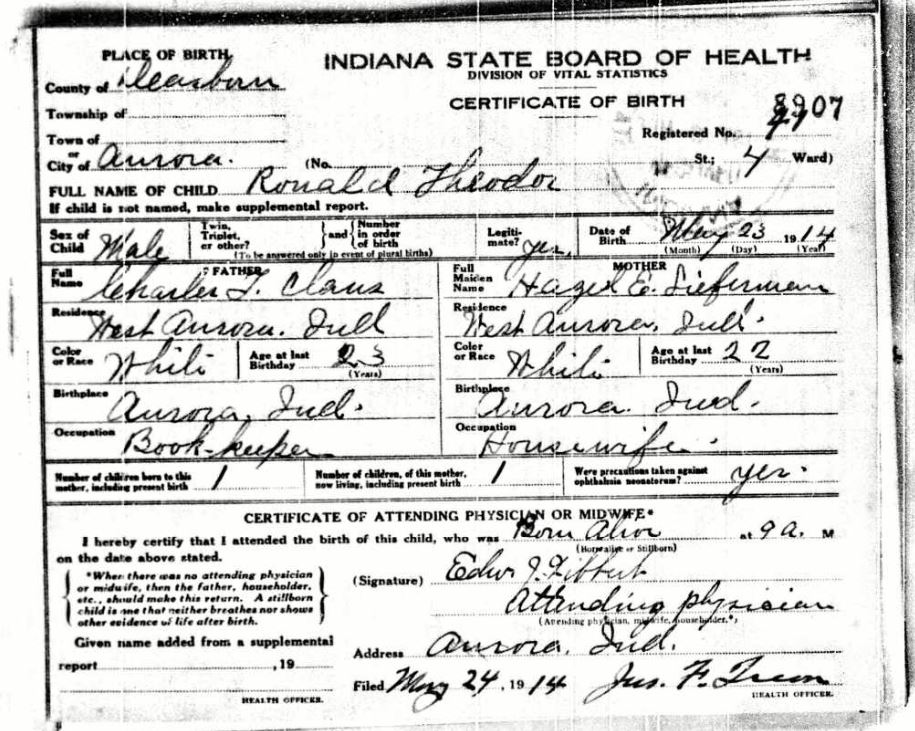 PLACE OF BIRTH
INDIANA STATE BOARD OF HEALTH
DIVISION OF VITAL STATISTICS
County of Dearborn
CERTIFICATE OF BIRTH
Township of
8907
Registered No.
Town of
or
City of Aurora. (No. St.; 4 Ward)
FULL NAME OF CHILD Ronald Theodor
If child is not named, make supplemental report.
Sex of Child Male
Twin, Triplet, or other? } and { Number in order of birth
(To be answered only in event of plural births)
Legitimate? yes.
Date of Birth May 23 1914
(Month) (Day) (Year)
FATHER
Full Name Charles T. Claus
MOTHER
Full Maiden Name Hazel E.
Residence West Aurora. Ind
Residence West Aurora, Ind.
Color or Race White
Age at last Birthday 23
(Years)
Color or Race White
Age at last Birthday 22
(Years)
Birthplace Aurora, Ind.
Birthplace Aurora. Ind.
Occupation Book-keeper
Occupation Housewife.
Number of children born to this mother, including present birth 1
Number of children, of this mother, now living, including present birth 1
Were precautions taken against ophthalmia neonatorum? yes.
CERTIFICATE OF ATTENDING PHYSICIAN OR MIDWIFE*
I hereby certify that I attended the birth of this child, who was Born Alive at 9 a. M
(Born alive or Stillborn)
on the date above stated.
{ *When there was no attending physician
or midwife, then the father, householder,
etc., should make this return. A stillborn
child is one that neither breathes nor shows
other evidence of life after birth. }
(Signature) Edw J.
Attending physician
(Attending physician, midwife, householder.*)
Given name added from a supplemental
report , 19
Address Aurora, Ind.
Filed May 24, 1914 Jas. F.
HEALTH OFFICER.
HEALTH OFFICER.